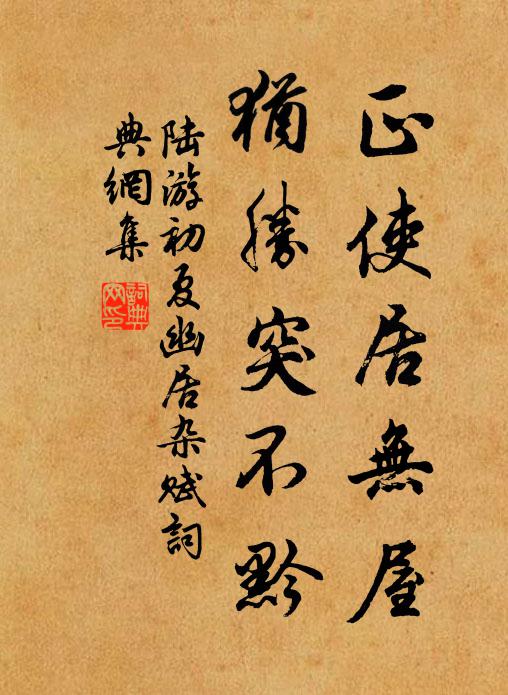 正使居無屋
猶勝突不黔
陸游初夏幽居杂赋詞
典網集
詞典网印